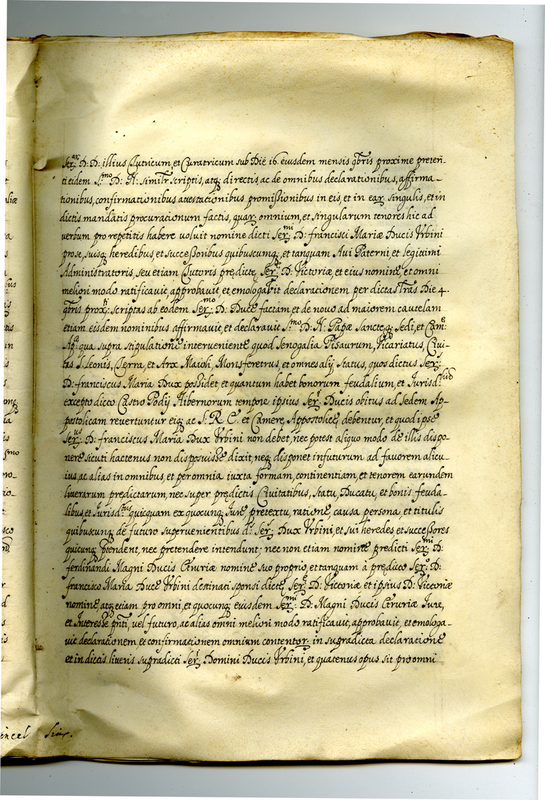 Ser.mæ D: D: illius Tutricum, et Curatricum sub Die 16 eiusdem mensis qbris proxime preteri-
ti eidem S.mo D: N: similr scriptis, atq; directis, ac de omnibus declarationibus, affirma-
tionibus, confirmationibus attestationibus promissionibus in eis, et in ear singulis, et in
dictis mandatis procurationum factis, quar omnium, et singularum tenores hic ad
verbum pro repetitis habere voluit nomine dicti Ser.mi D: Francisci Mariæ Ducis Urbini
pro se, suisq; heredibus et successoribus quibuscunq; et tanquam Avi Paterni et legitimi
Administratoris, seu etiam Tutoris predictæ Ser.mæ D: Victoriæ et eius nomine, et omni
meliori modo ratificavit approbavit et emologavit declarationem per dictas lras Die 4
qbris prox.i scriptas ab eodem Ser.mo D: Duce factam et de novo ad maiorem cautelam
etiam eisdem nominibus affirmavit et declaravit S.mo D: N: Papæ Sanctæq; Sedi, et Cam.
Ap.cæ qua supra stipulatione interveniente quod Senogalia Pisaurum, Vicariatus, Civi-
tas S. Leonis, Terra, et Arx Maioli, Monsferetrus, et omnes alij Status, quos dictus Ser.mus
D: Franciscus Maria Dux possidet et quantum habet bonorum feudalium, et Jurisd.lium
excepto dicto Castro Podij Hibernorum tempore ipsius Ser.mi Ducis obitus ad Sedem Ap-
postolicam revertuntur eiq; ac S. R. E. et Cameræ Appostolicæ debentur, et quod ipse
Ser.mus D: Franciscus Maria Dux Urbini non debet, nec potest aliquo modo de illis dispo-
nere sicuti hactenus non disposuisse dixit, neq; disponet in futurum ad favorem alicu-
ius, ac alias in omnibus, et per omnia iuxta formam, continentiam, et tenorem earundem
litterarum predictarum, nec super predictis Civitatibus, Statu Ducatu, et bonis feuda-
libus, et Jurisd.bus quicquam ex quocunq; Jure pretextu, ratione, causa persona, et titulis
quibuscunq; de futuro supervenientibus d. Ser. Dux Urbini, et sui heredes et successores
quicunq; prendent, nec pretendere intendunt; nec non etiam nomine predicti Ser.mi D:
Ferdinandi Magni Ducis Etruriæ nomine suo proprio, et tanquam à predicto Ser.mo D:
Francisco Maria Duce Urbini destinati sponsi dictæ Ser.mæ D: Victoriæ et ipsius D: Victoriæ
nomine, atq; etiam pro omni, et quocunq; eiusdem Ser.mi D. Magni Ducis Etruriæ Jure,
et Interesse pnti, vel futuro, ac alias omni meliori modo ratificavit, approbavit, et emologa-
vit declarationem, et confirmationem omnium contentor in supradicta declaratione
et in dictis litteris supradicti Ser.mi Domini Ducis Urbini, et quatenus opus sit pro omni